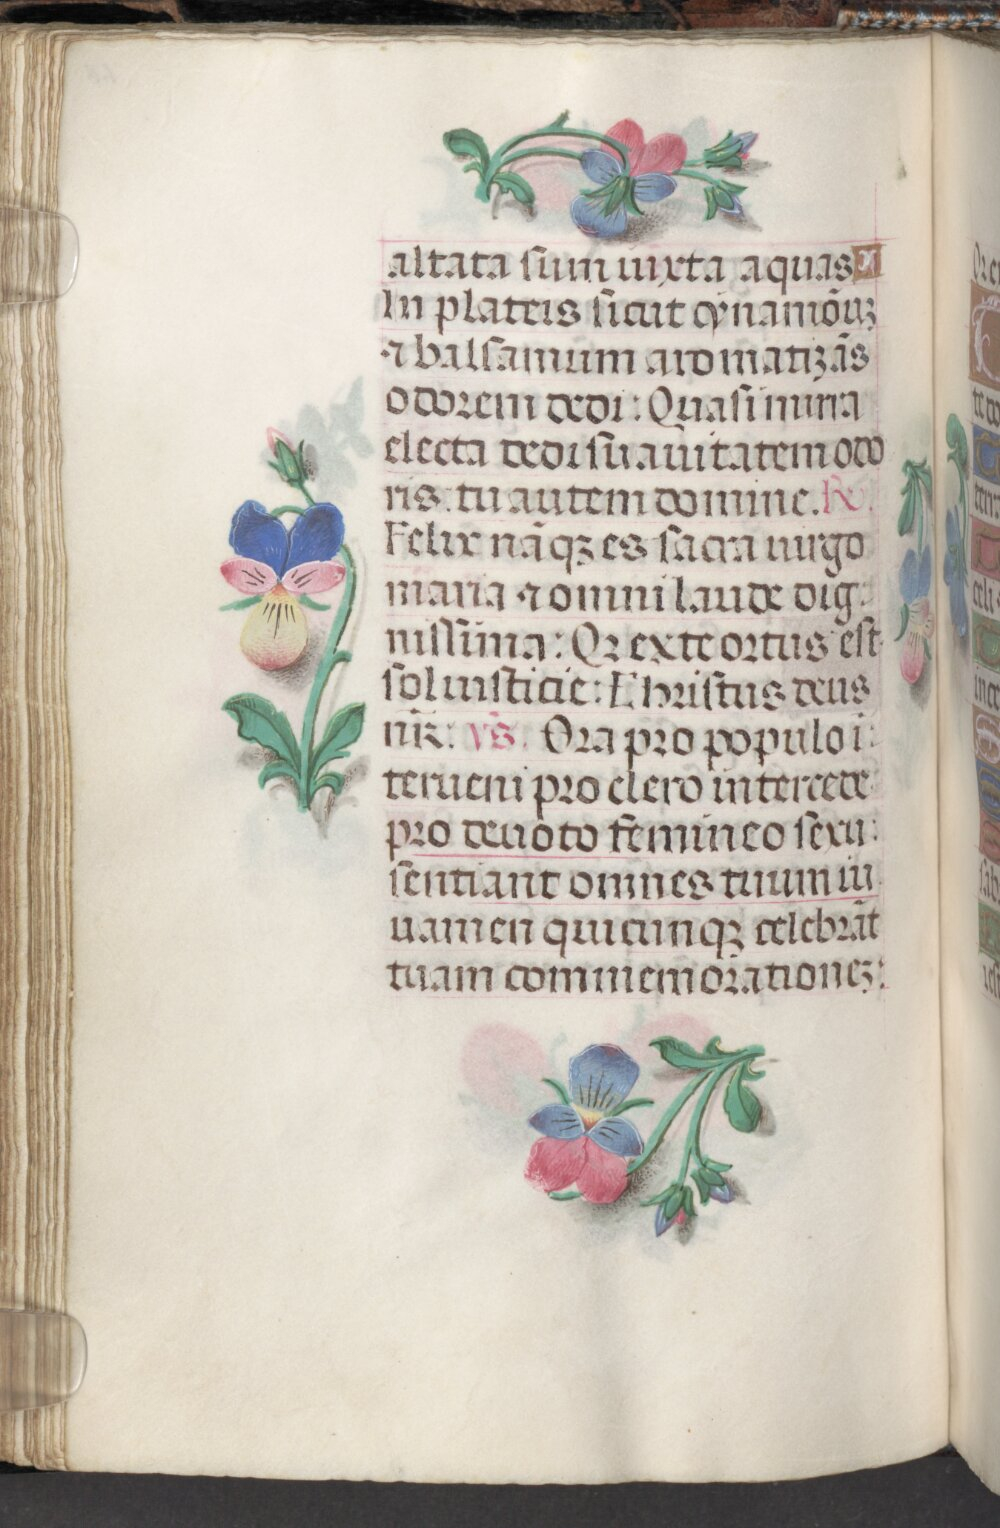 altata sum iuxta aquas
In plateis sicut cynamōuȝ
⁊ balsamum aromatizās
odorem dedi: Quasi mirra
electa dedi suauitatem odo
ris. tu autem domine. R̷.
Felix nāqȝ es sacra uirgo
maria ⁊ omni laude dig:
nissima: Qꝛ ex te ortus est
sol iusticie: Christus deus
nr̄. vs̄. Ora pro populo i:
terueni pro clero intercede
pro deuoto femineo sexu:
sentiant omnes tuum iu
uamen quicunqȝ celebrāt
tuam commemorationeȝ: